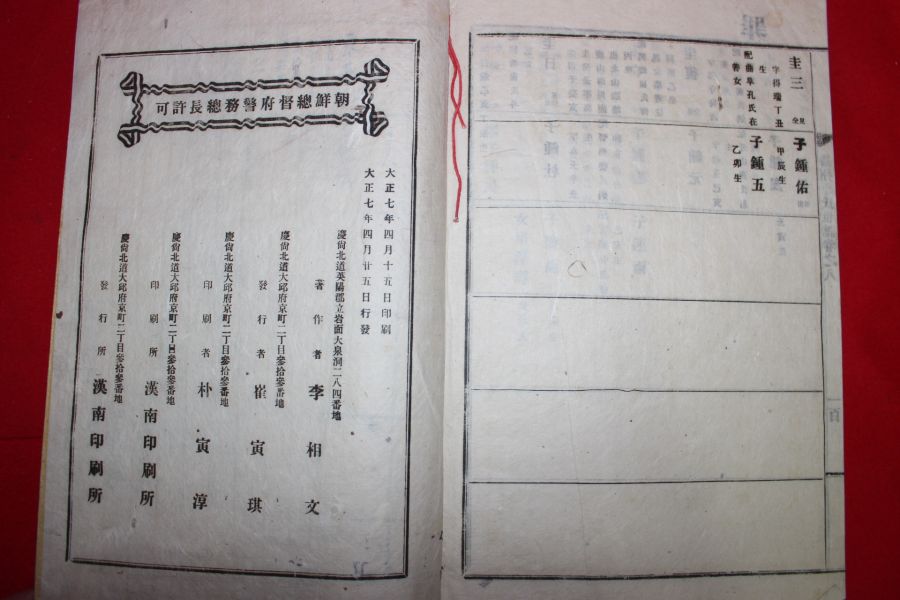 圭三
字得瑞丁丑
生
配曲阜孔氏在
善女
子鍾佑
甲辰生
子鍾五
乙卯生
朝鮮總督府警務總長許可
大正七年四月十五日印刷
大正七年四月廿五日行發
慶尙北道英陽郡立岩面大泉洞二八四番地
著作者 李相文
慶尙北道大邱府京町二丁目參拾參番地
發行者 崔寅琪
慶尙北道大邱府京町二丁目參拾參番地
印刷者 朴寅淳
慶尙北道大邱府京町二丁目參拾參番地
印刷所 漢南印刷所
慶尙北道大邱府京町二丁目參拾參番地
發行所 漢南印刷所